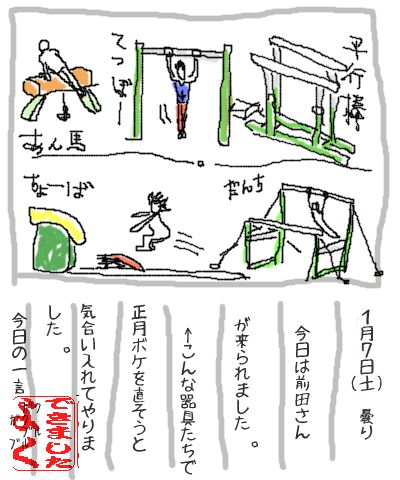 平行棒
てつぼー
あん馬
だんち
ちょーば
1月7日(土) 曇り
今日は前田さん
が来られました。
←こんな器具たちで
正月ボケを直そうと
気合い入れてやりま
した。
今日の一言
よく
できました